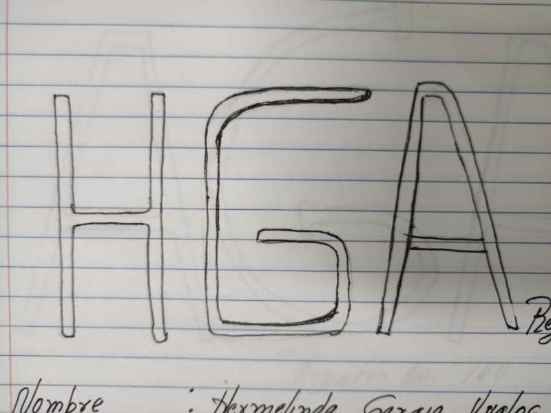 HGA
Nombre : Hermelinda Garcia